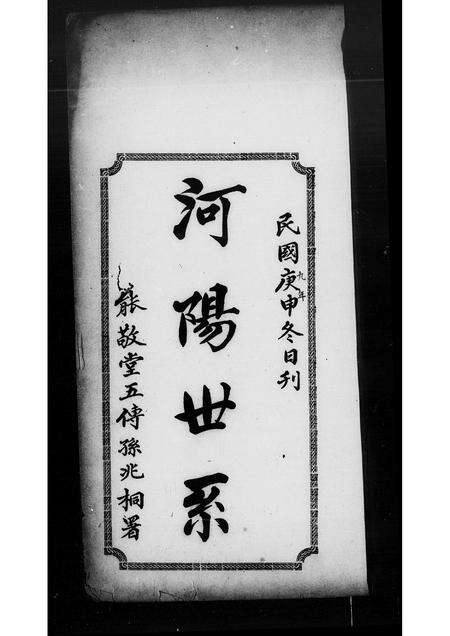 民國庚申冬日刊
九年
河陽世系
能敬堂五傳孫兆桐署